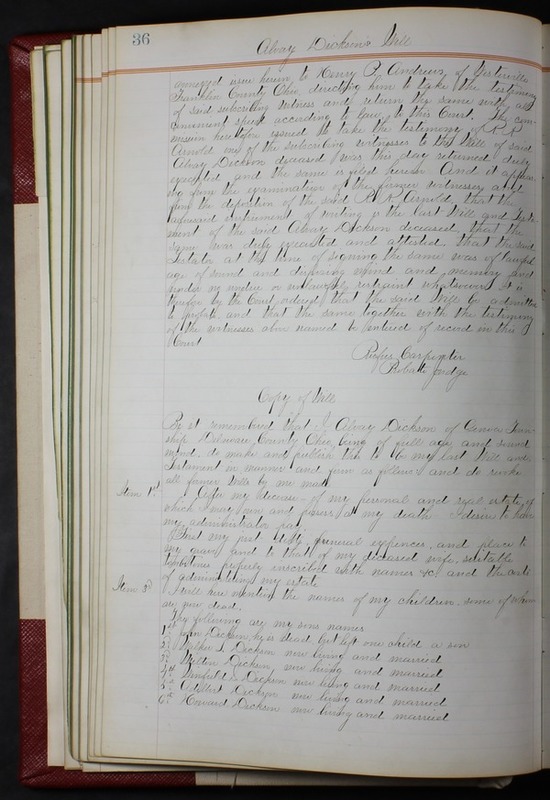 36
Alvay Dickson's Will
annexed issue herein to Henry P. Andrews of Westerville
Franklin County Ohio, directing him to take the testimony
of said subscribing witness and return the same with all
convenient speed according to law, to this Court. The com-
mission heretofore issued to take the testimony of R. R.
Arnold one of the subscribing witnesses to the Will of said
Alvay Dickson deceased was this day returned duly
executed and the same is filed herein. And it appear-
ing from the examination of the former witnesses and
from the deposition of the said R. R. Arnold, that the
aforesaid instrument of writing is the last Will and Testa-
ment of the said Alvay Dickson deceased, that the
same was duly executed and attested. That the said
Testator at the time of signing the same was of lawful
age of sound and disposing mind and memory and
under no undue or unlawful restraint whatsoever. It is
therefore by the Court ordered that the said Will be admitted
to probate and that the same together with the testimony
of the witnesses above named be entered of record in this
Court
Rufus Carpenter
Probate Judge
Copy of Will
Be it remembered that I, Alvay Dickson of Genoa Town-
ship Delaware County Ohio, being of full age and sound
mind. do make and publish this to be my last Will and
Testament in manner and form as follows: and do revoke
all former Wills by me made
Item 1st After my decease of my personal and real estate, of
which I may own and possess at my death I desire to have
my administrator pay
First my just debts, funeral expences, and place to
my grave and to that of my deceased wife, suitable
tombstones properly inscribed with names &c and the costs
of administering my estate
Item 2d I will here mention the names of my children. some of whom
are now dead.
The following are my sons names
1st John Dickson, he is dead but left one child a son
2d Walker L Dickson now living and married
3d Milton Dickson now living and married
4th Dickson now living and married
5th Dickson now living and married
6th Howard Dickson now living and married